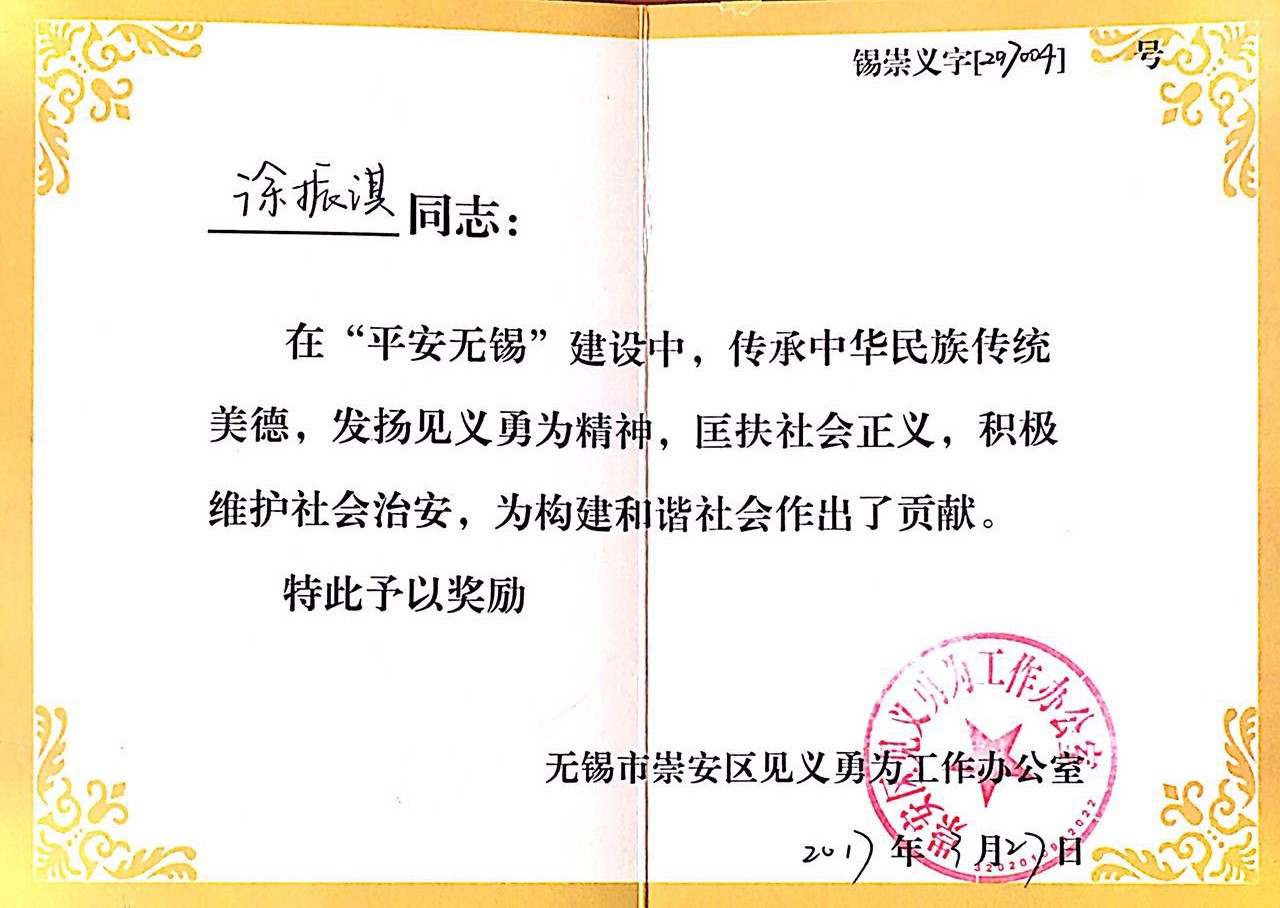 锡崇义字[2017004] 号
徐振淇同志：
在“平安无锡”建设中，传承中华民族传统
美德，发扬见义勇为精神，匡扶社会正义，积极
维护社会治安，为构建和谐社会作出了贡献。
特此予以奖励
无锡市崇安区见义勇为工作办公室
2017年3月27日
崇安区见义勇为工作办公室